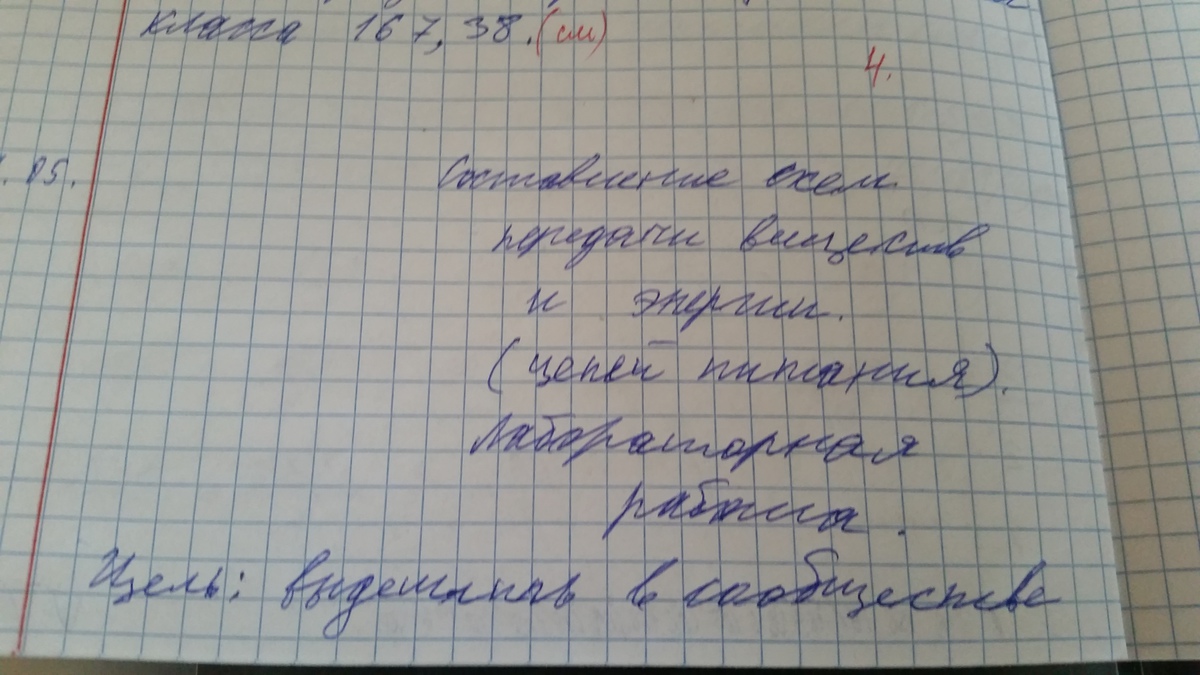 класса 167,38. (см)
4.
05.
Составление схем
передачи веществ
и энергии.
(цепей питания).
Лабораторная
работа.
Цель: выделить в сообществе